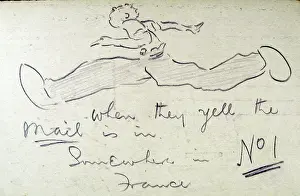 when they yell the
Mail is in
Somewhere in
France
No 1